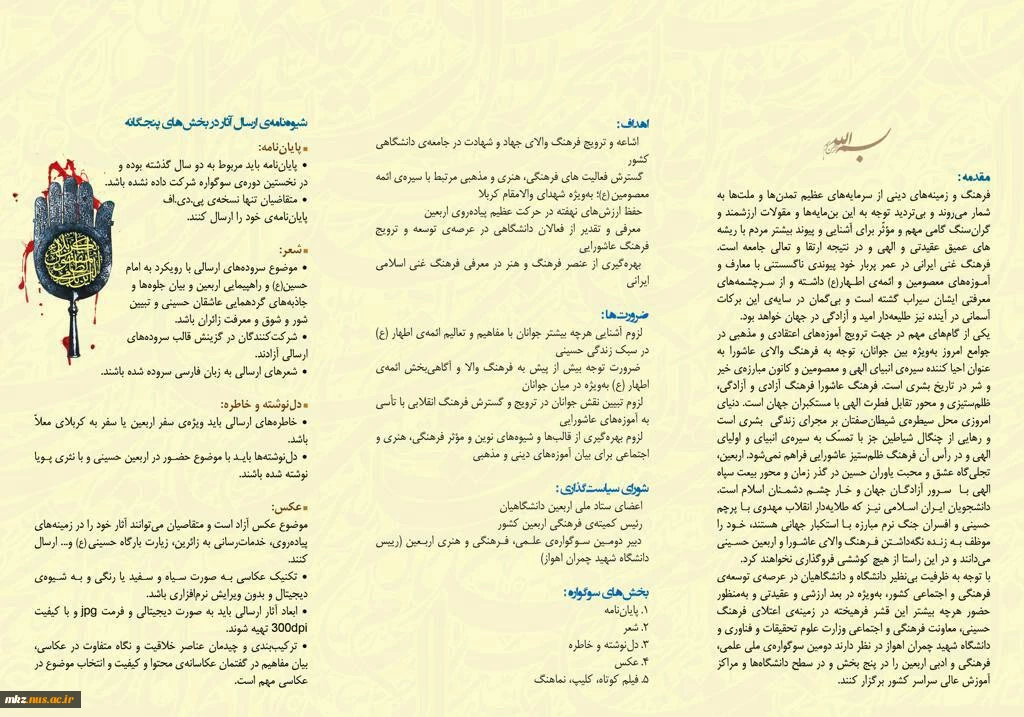 بسم الله
مقدمه:
فرهنگ و زمینه‌های دینی از سرمایه‌های عظیم تمدن‌ها و ملت‌ها به
شمار می‌روند و بی‌تردید توجه به این بن‌مایه‌ها و مقولات ارزشمند و
گران‌سنگ گامی مهم و مؤثّر برای آشنایی و پیوند بیشتر مردم با ریشه
های عمیق عقیدتی و الهی و در نتیجه ارتقا و تعالی جامعه است.
فرهنگ غنی ایرانی در عمر پربار خود پیوندی ناگسستنی با معارف و
آموزه‌های معصومین و ائمه‌ی اطهار(ع) داشته و از سرچشمه‌های
معرفتی ایشان سیراب گشته است و بی‌گمان در سایه‌ی این برکات
آسمانی در آینده نیز طلیعه‌دار امید و آزادگی در جهان خواهد بود.
یکی از گام‌های مهم در جهت ترویج آموزه‌های اعتقادی و مذهبی در
جوامع امروز به‌ویژه بین جوانان، توجه به فرهنگ والای عاشورا به
عنوان احیا کننده سیره‌ی انبیای الهی و معصومین و کانون مبارزه‌ی خیر
و شر در تاریخ بشری است. فرهنگ عاشورا فرهنگ آزادی و آزادگی،
ظلم‌ستیزی و محور تقابل فطرت الهی با مستکبران جهان است. دنیای
امروزی محل سیطره‌ی شیطان‌صفتان بر مجرای زندگی بشری است
و رهایی از چنگال شیاطین جز با تمسّک به سیره‌ی انبیای و اولیای
الهی و در رأس آن فرهنگ ظلم‌ستیز عاشورایی فراهم نمی‌شود. اربعین،
تجلی‌گاه عشق و محبت یاوران حسین در گذر زمان و محور بیعت سپاه
الهی با سرور آزادگان جهان و خار چشم دشمنان اسلام است.
دانشجویان ایران اسلامی نیز که طلایه‌دار انقلاب مهدوی با پرچم
حسینی و افسران جنگ نرم مبارزه با استکبار جهانی هستند، خود را
موظف به زنده نگه‌داشتن فرهنگ والای عاشورا و اربعین حسینی
می‌دانند و در این راستا از هیچ کوششی فروگذاری نخواهند کرد.
با توجه به ظرفیت بی‌نظیر دانشگاه و دانشگاهیان در عرصه‌ی توسعه‌ی
فرهنگی و اجتماعی کشور، به‌ویژه در بعد ارزشی و عقیدتی و به‌منظور
حضور هرچه بیشتر این قشر فرهیخته در زمینه‌ی اعتلای فرهنگ
حسینی، معاونت فرهنگی و اجتماعی وزارت علوم تحقیقات و فناوری و
دانشگاه شهید چمران اهواز در نظر دارند دومین سوگواره‌ی ملی علمی،
فرهنگی و ادبی اربعین را در پنج بخش و در سطح دانشگاه‌ها و مراکز
آموزش عالی سراسر کشور برگزار کنند.
اهداف:
اشاعه و ترویج فرهنگ والای جهاد و شهادت در جامعه‌ی دانشگاهی
کشور
گسترش فعالیت های فرهنگی، هنری و مذهبی مرتبط با سیره‌ی ائمه
معصومین(ع)؛ به‌ویژه شهدای والامقام کربلا
حفظ ارزش‌های نهفته در حرکت عظیم پیاده‌روی اربعین
معرفی و تقدیر از فعالان دانشگاهی در عرصه‌ی توسعه و ترویج
فرهنگ عاشورایی
بهره‌گیری از عنصر فرهنگ و هنر در معرفی فرهنگ غنی اسلامی
ایرانی
ضرورت‌ها:
لزوم آشنایی هرچه بیشتر جوانان با مفاهیم و تعالیم ائمه‌ی اطهار (ع)
در سبک زندگی حسینی
ضرورت توجه بیش از پیش به فرهنگ والا و آگاهی‌بخش ائمه‌ی
اطهار (ع) به‌ویژه در میان جوانان
لزوم تبیین نقش جوانان در ترویج و گسترش فرهنگ انقلابی با تأسی
به آموزه‌های عاشورایی
لزوم بهره‌گیری از قالب‌ها و شیوه‌های نوین و مؤثر فرهنگی، هنری و
اجتماعی برای بیان آموزه‌های دینی و مذهبی
شورای سیاست‌گذاری:
اعضای ستاد ملی اربعین دانشگاهیان
رئیس کمیته‌ی فرهنگی اربعین کشور
دبیر دومین سوگواره‌ی علمی، فرهنگی و هنری اربعین (رییس
دانشگاه شهید چمران اهواز)
بخش‌های سوگواره:
۱. پایان‌نامه
۲. شعر
۳. دل‌نوشته و خاطره
۴. عکس
۵. فیلم کوتاه، کلیپ، نماهنگ
شیوه‌نامه‌ی ارسال آثار در بخش‌های پنجگانه
▪ پایان‌نامه:
• پایان‌نامه باید مربوط به دو سال گذشته بوده و
در نخستین دوره‌ی سوگواره شرکت داده نشده باشد.
• متقاضیان تنها نسخه‌ی پی.دی.اف
پایان‌نامه‌ی خود را ارسال کنند.
▪ شعر:
• موضوع سروده‌های ارسالی با رویکرد به امام
حسین(ع) و راهپیمایی اربعین و بیان جلوه‌ها و
جاذبه‌های گردهمایی عاشقان حسینی و تبیین
شور و شوق و معرفت زائران باشد.
• شرکت‌کنندگان در گزینش قالب سروده‌های
ارسالی آزادند.
• شعرهای ارسالی به زبان فارسی سروده شده باشند.
▪ دل‌نوشته و خاطره:
• خاطره‌های ارسالی باید ویژه‌ی سفر اربعین یا سفر به کربلای معلاّ
باشد.
• دل‌نوشته‌ها باید با موضوع حضور در اربعین حسینی و با نثری پویا
نوشته شده باشند.
▪ عکس:
موضوع عکس آزاد است و متقاضیان می‌توانند آثار خود را در زمینه‌های
پیاده‌روی، خدمات‌رسانی به زائرین، زیارت بارگاه حسینی(ع) و... ارسال
کنند.
• تکنیک عکاسی به صورت سیاه و سفید یا رنگی و به شیوه‌ی
دیجیتال و بدون ویرایش نرم‌افزاری باشد.
• ابعاد آثار ارسالی باید به صورت دیجیتالی و فرمت jpg و با کیفیت
300dpi تهیه شوند.
• ترکیب‌بندی و چیدمان عناصر خلاقیت و نگاه متفاوت در عکاسی،
بیان مفاهیم در گفتمان عکاسانه‌ی محتوا و کیفیت و انتخاب موضوع در
عکاسی مهم است.
mkz.nus.ac.ir